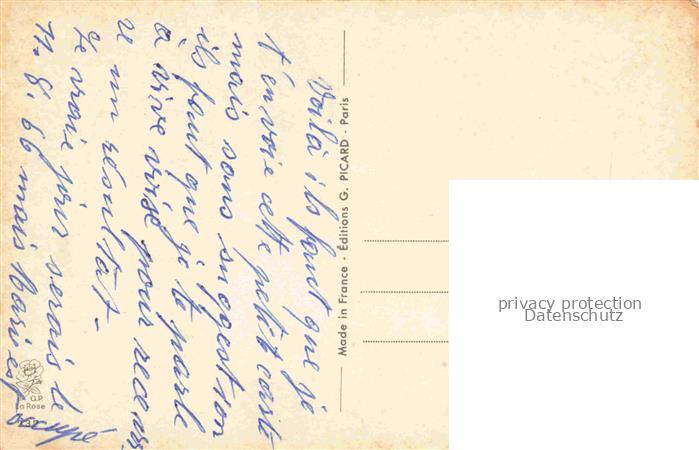 Voilà ils faut que je
t'envoie cette petit carte
mais sans sugestion
ils faut que je te parle
à vive voise pour recevoi
re un résultat -
Le vraie jour serais le
11. 8. 66 mais Mari est
occupé
Made in France - Éditions G. PICARD - Paris
G.P.
La Rose
privacy protection
Datenschutz